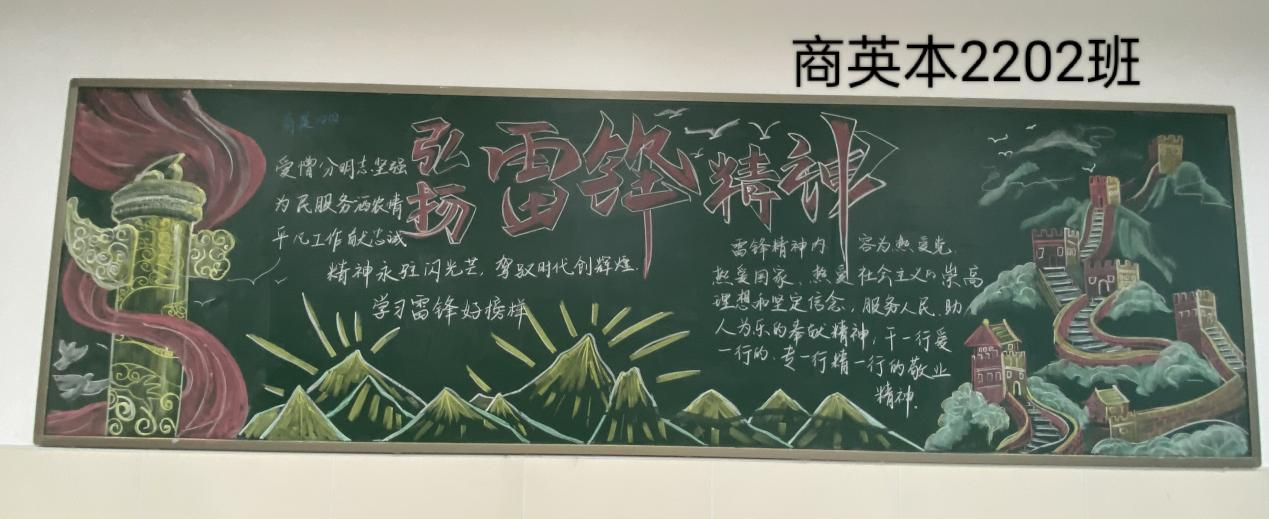 商英本2202班
弘扬雷锋精神
爱憎分明志坚强
为民服务洒衣情
平凡工作献忠诚
精神永驻闪光芒，驾驭时代创辉煌.
学习雷锋好榜样
雷锋精神内 容为热爱党.
热爱国家、热爱社会主义的崇高
理想和坚定信念，服务人民、助
人为乐的奉献精神，干一行爱
一行的、专一行精一行的敬业
精神.